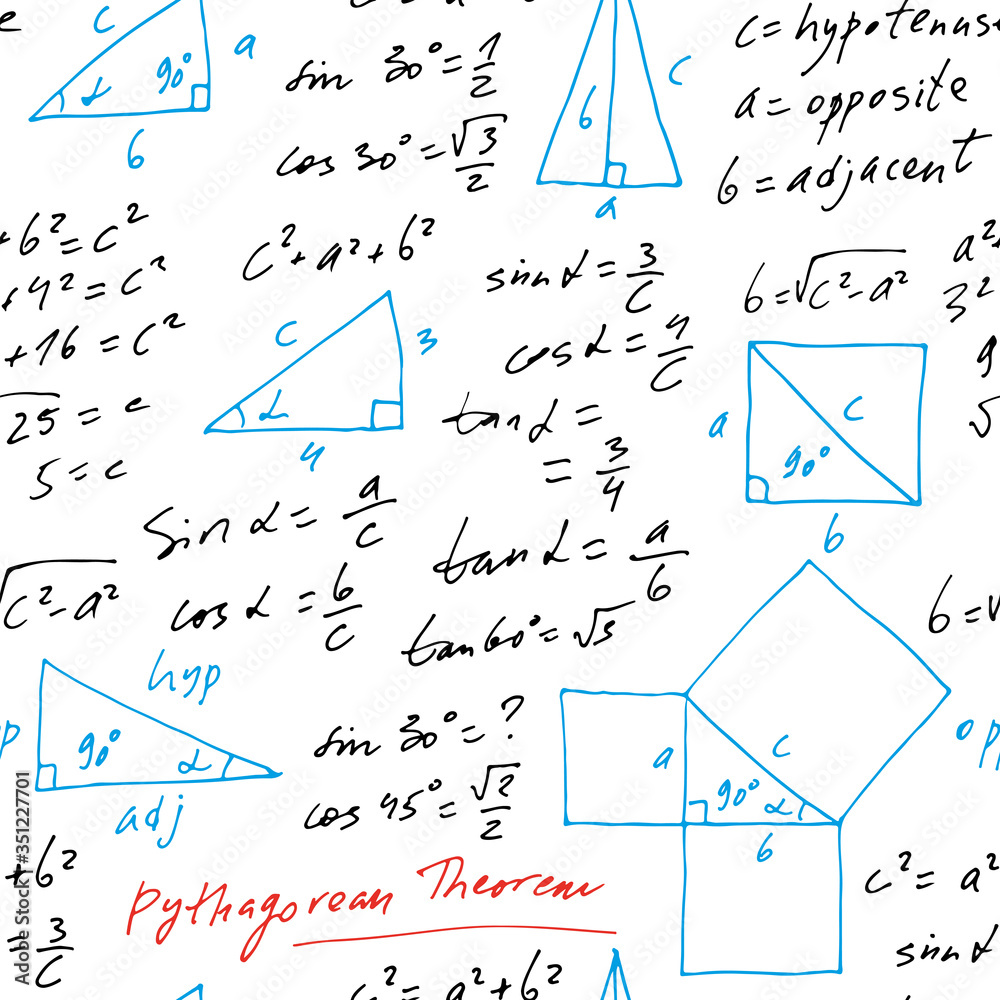 c
a
α
90°
b
sin 30° = 1/2
cos 30° = √3/2
b
c
a
c = hypotenuse
a = opposite
b = adjacent
+ b² = c²
+ 4² = c²
+ 16 = c²
√25 = c
5 = c
c² + a² + b²
c
3
α
4
sin α = 3/c
cos α = 4/c
tan α =
= 3/4
b = √c² - a²
a² +
3²
9
√
a
c
90°
b
sin α = a/c
cos α = b/c
tan α = a/b
tan 60° = √3
√c² - a²
b = √
hyp
90°
α
adj
sin 30° = ?
cos 45° = √2/2
a
c
90°
α
b
opp
+ b²
= 3/c
Pythagorean Theorem
c² = a²
sin α
c² = a² + b²
Adobe Stock | #351227701